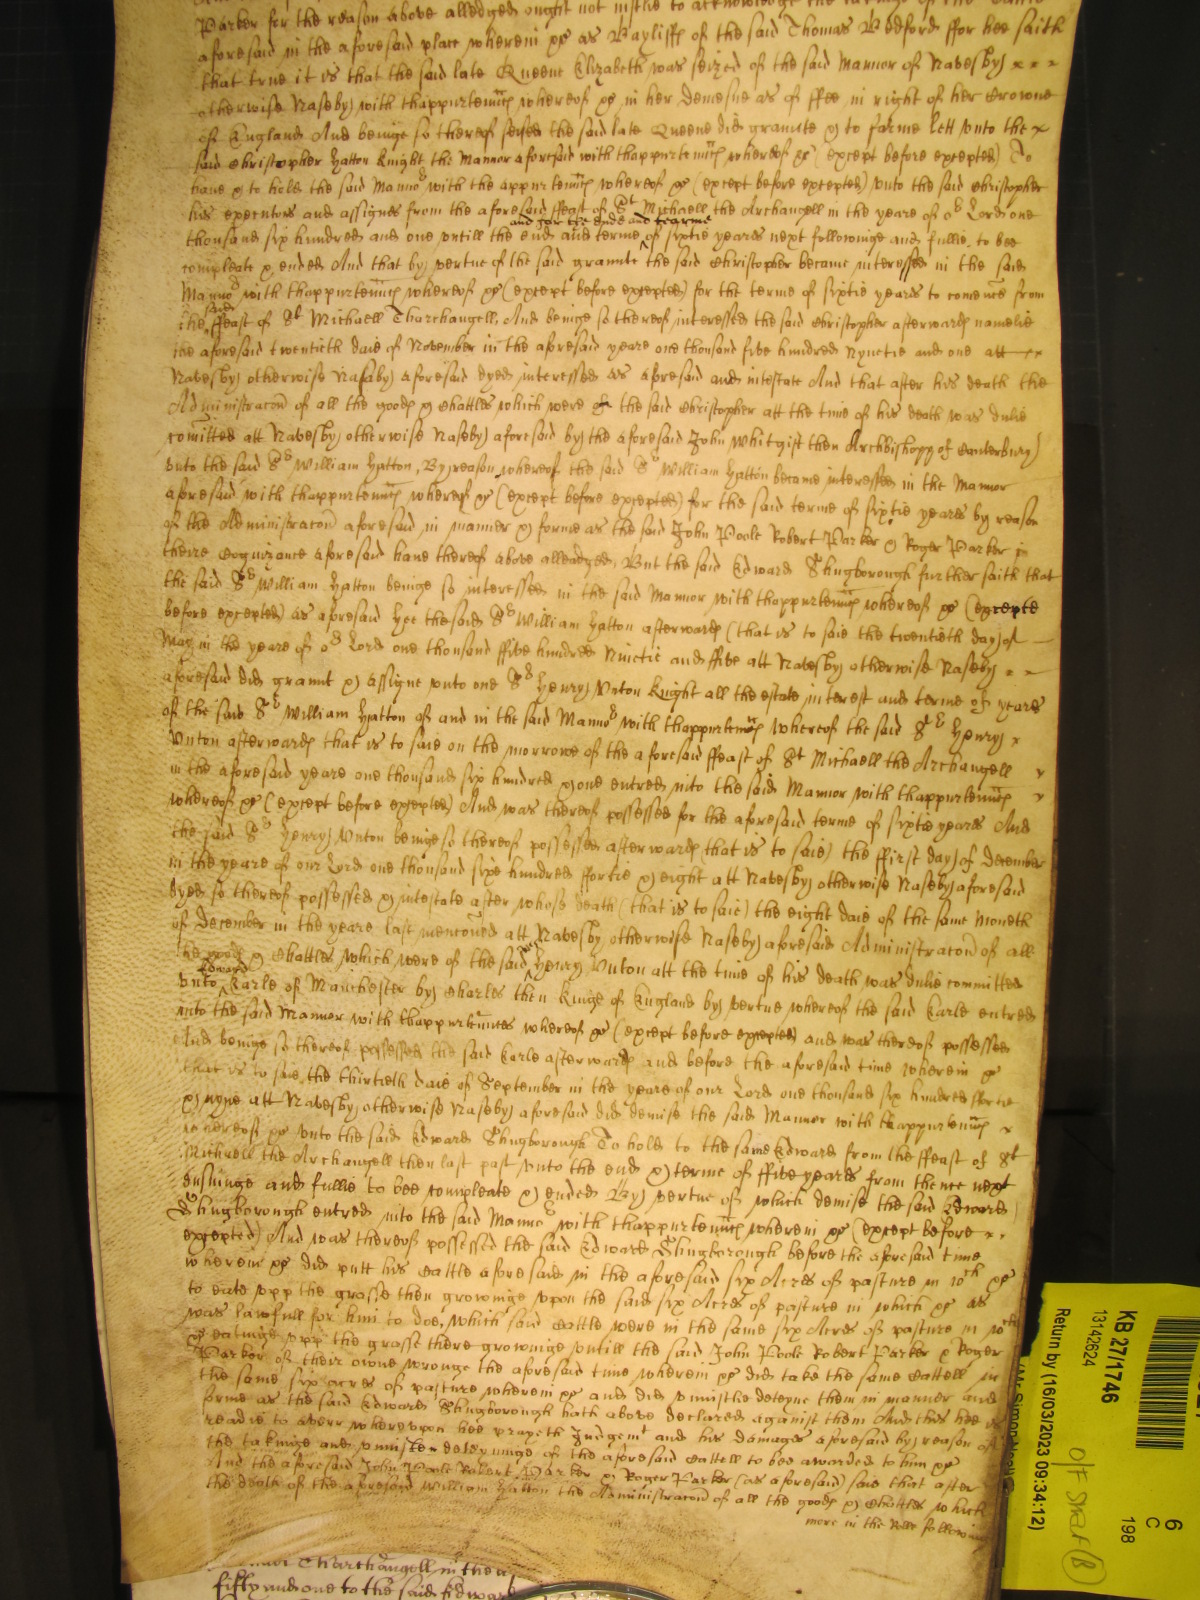 Parker for the reason above alledged ought not justlie to acknowledge the
aforesaid in the aforesaid place wherein &c as Bayliffe of the said Thomas Bedford ffor hee saith
that true it is that the said late Queene Elizabeth was seized of the said Mannor of Navesby
otherwise Naseby with thappurtenncs whereof &c in her demesne as of ffee in right of her Crowne
of England And beinge so thereof seised the said late Queene did graunte & to farme lett unto the
said Christopher Hatton Knight the Mannor aforesaid with thappurtenncs whereof &c (except before excepted) To
have & to hold the said Mannor with the appurtenncs whereof &c (except before excepted) unto the said Christopher
his executors and assignes from the aforesaid ffeast of St Michaell the Archangell in the yeare of or Lord one
and for the ende and tearme
thousand six hundred and one untill the end and terme of sixtie yeares next followinge and fullie to bee
compleate & ended And that by vertue of the said graunte the said Christopher became interessed in the said
Mannor with thappurtenncs whereof &c (except before excepted) for the terme of sixtie yeares to comence from
said
the ffeast of St Michaell Tharchangell, And beinge so thereof interessed the said Christopher afterwards namelie
the aforesaid twentieth daie of November in the aforesaid yeare one thousand five hundred Nynetie and one att
Navesby otherwise Nasaby aforesaid dyed interessed as aforesaid and intestate And that after his death the
Administracon of all the goods & Chattles which were of the said Christopher att the time of his death was dulie
comitted att Navesby otherwise Naseby aforesaid by the aforesaid John Whitgist then Archbishopp of Canterbury
unto the said Sr William Hatton, By reason whereof the said Sr William Hatton became interessed in the Mannor
aforesaid with thappurtenncs whereof &c (except before excepted) for the said terme of sixtie yeares by reason
of the Administracon aforesaid in manner & forme as the said John Poole Robert Parker & Roger Parker in
theire Cognizance aforesaid have thereof above alleadged. But the said Edward Shugborough further saith that
the said Sr William Hatton beinge so interessed in the said Mannor with thappurtenncs whereof &c (excepte
before excepted) as aforesaid Hee the said Sr William Hatton afterwards (that is to saie the twentieth day of
May in the yeare of or Lord one thousand ffive hundred Ninetie and ffive att Navesby otherwise Naseby
aforesaid did graunt & assigne unto one Sr Henry Unton Knight all the estate interest and terme of yeares
of the said Sr William Hatton of and in the said Mannor with thappurtenncs whereof the said Sr Henry
Unton afterwards that is to saie on the morrowe of the aforesaid ffeast of St Michaell the Archangell
in the aforesaid yeare one thousand six hundred & one entred into the said Mannor with thappurtenncs
whereof &c (except before excepted) And was thereof possessed for the aforesaid terme of sixtie yeares And
the said Sr Henry Unton beinge so thereof possessed afterwards that is to saie) the ffirst day of December
in the yeare of our Lord one thousand sixe hundred ffortie & eight att Navesby otherwise Naseby aforesaid
dyed so thereof possessed & intestate after whose death (that is to saie) the eight daie of the same moneth
of December in the yeare last menconed att Navesby otherwise Naseby aforesaid Administracon of all
the goods & Chattles which were of the said Henry Unton att the time of his death was dulie committed
Edward
unto Earle of Manchester by Charles then Kinge of England by vertue whereof the said Earle entred
into the said Mannor with thappurtennces whereof &c (except before excepted) and was thereof possessed
And beinge so thereof possessed the said Earle afterwards and before the aforesaid time wherein &c
that is to saie the thirtieth daie of September in the yeare of our Lord one thousand six hundred ffortie
& nyne att Navesby otherwise Naseby aforesaid did demise the said Mannor with thappurtenncs
whereof &c unto the said Edward Shugborough To hold to the same Edward from the ffeast of St
Michaell the Archangell then last past unto the end & terme of ffive yeares from thence next
ensuinge and fullie to bee compleate & ended By vertue of which demise the said Edward
Shugborough entred into the said Mannor with thappurtenncs wherein &c (except before
excepted) And was thereof possessed the said Edward Shugborough before the aforesaid time
wherein &c did putt his Cattle aforesaid in the aforesaid six Acres of pasture in wch &c
to eate upp the grasse then growinge upon the said six Acres of pasture in which &c as
was lawfull for him to doe, which said Cattle were in the same six Acres of pasture in wch
&c eatinge upp the grasse there growinge untill the said John Poole Robert Parker & Roger
Parker of their owne wronge the aforesaid time wherein &c did take the same Cattell in
the same six acres of pasture wherein &c and did uniustlie deteyne them in manner and
forme as the said Edward Shugborough hath above declared against them And this hee is
readie to averr whereupon hee prayeth Judgemt and his damages aforesaid by reason of
the takinge and uniust deteyninge of the aforesaid Cattell to bee awarded to him &c
And the aforesaid John Poole Robert Parker & Roger Parker (as aforesaid) saie that after
the death of the aforesaid William Hatton the Administracon of all the goods & Chattles which
more in the Rolle followinge
Tharchangell in the
fifty and one to the said Edward
KB 27/1746
13142624
Return by (16/03/2023 09:34:12)
6
C
198